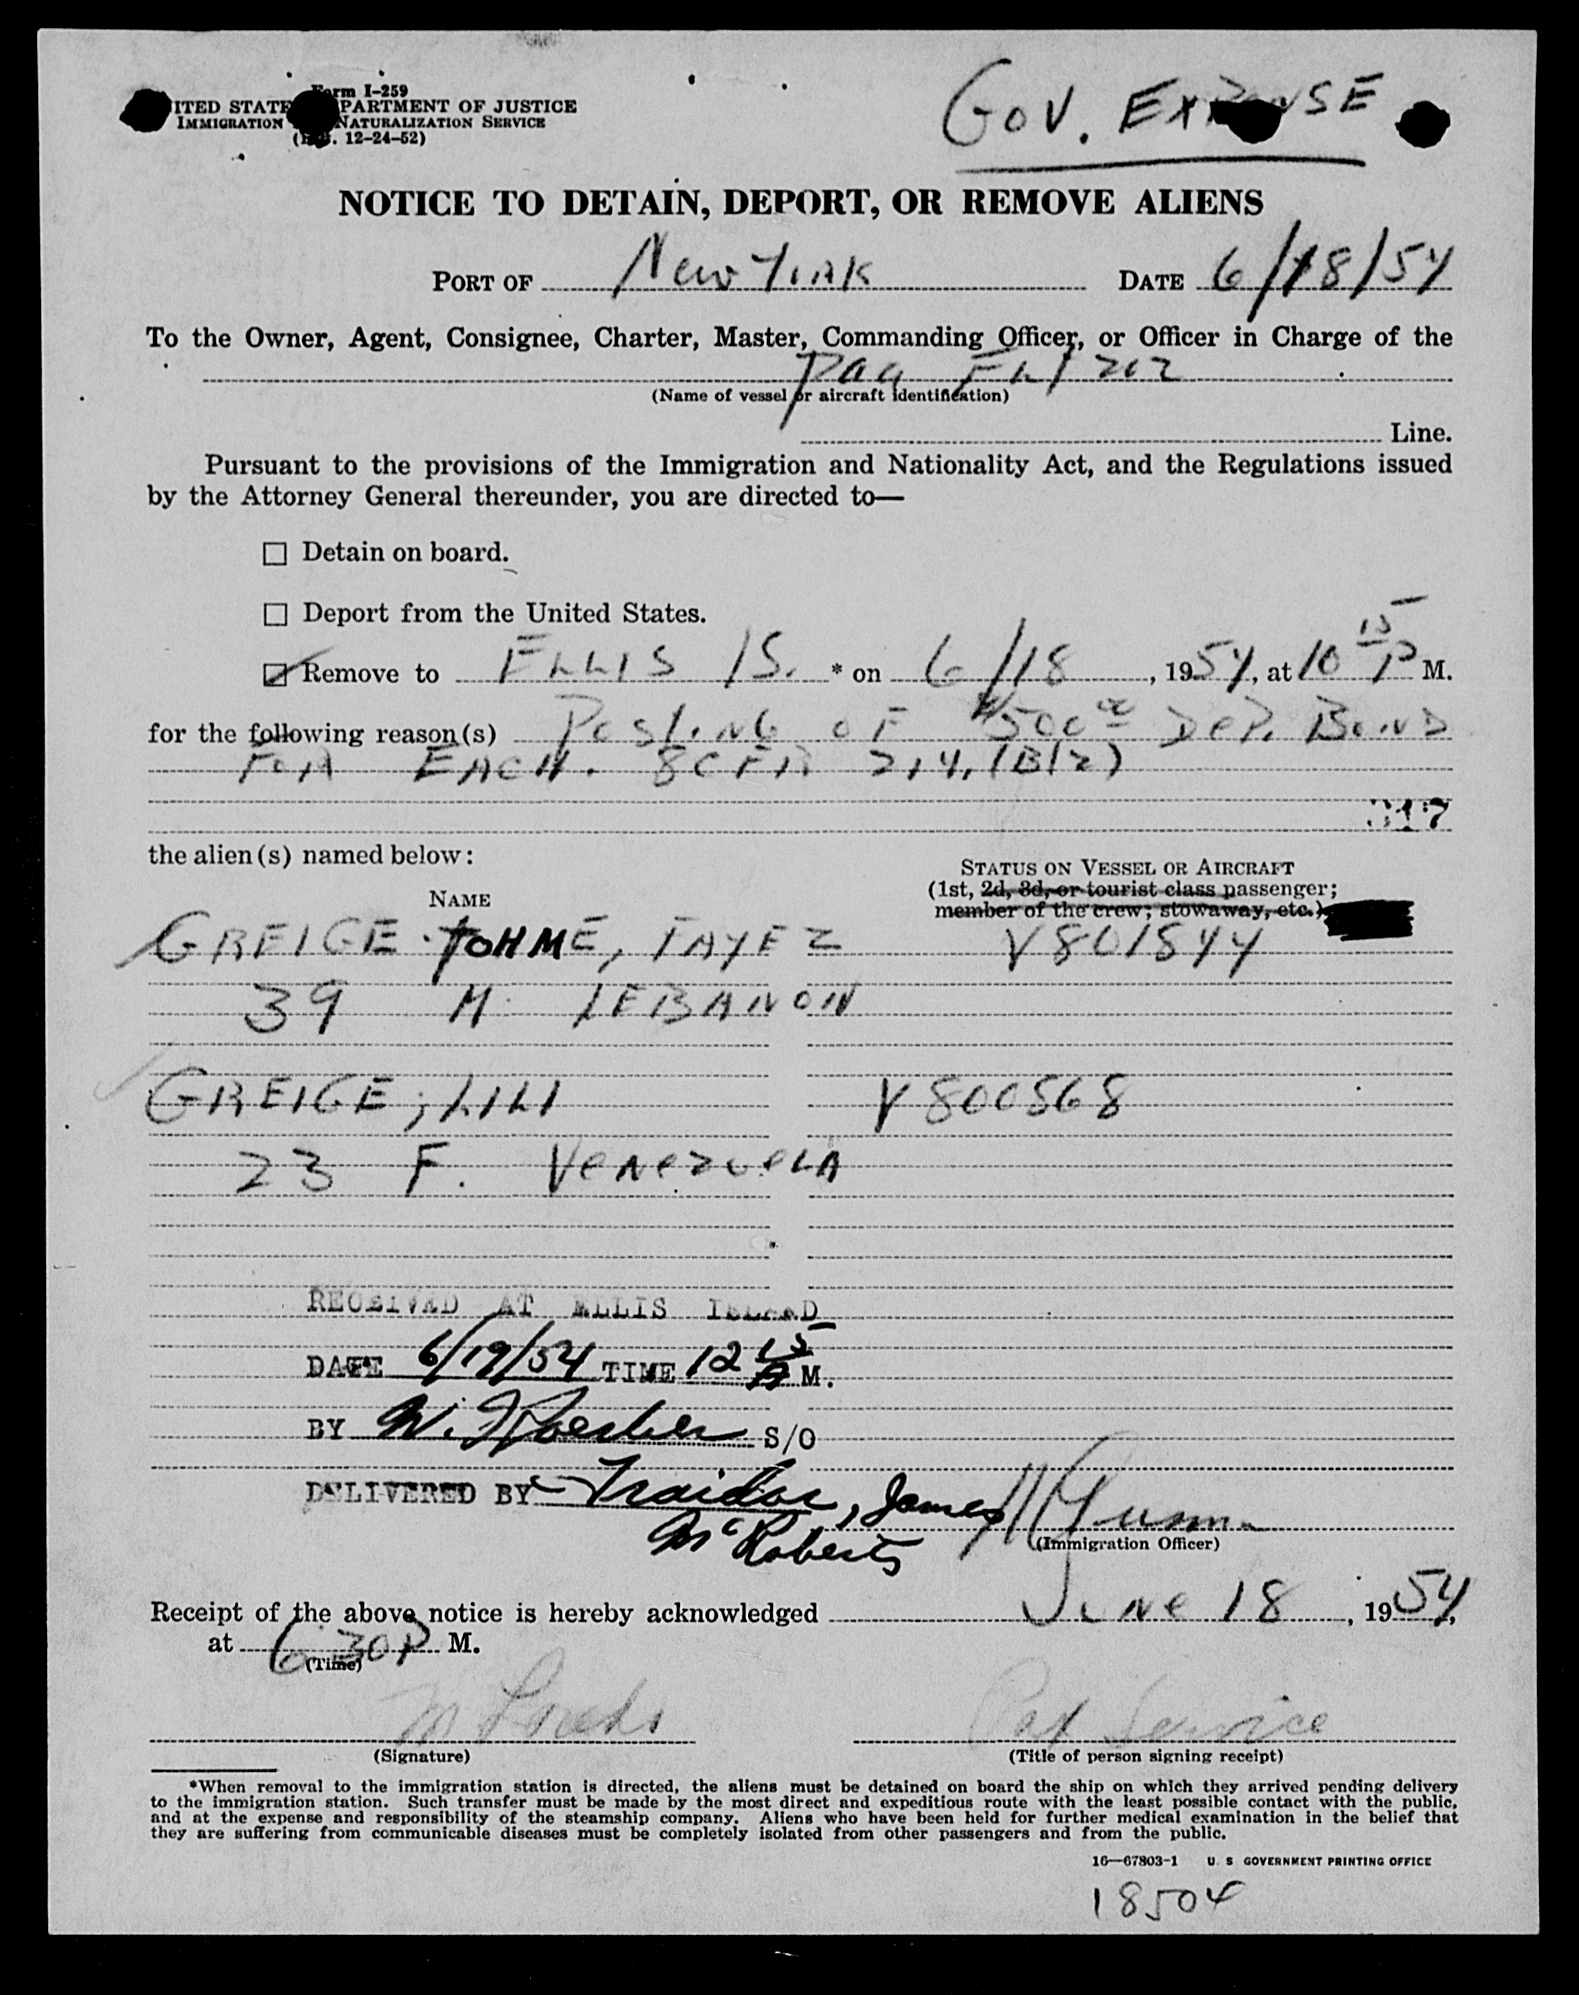 Form I-259
UNITED STATES DEPARTMENT OF JUSTICE
IMMIGRATION NATURALIZATION SERVICE
12-24-52)
GOV. EXPENSE
NOTICE TO DETAIN, DEPORT, OR REMOVE ALIENS
PORT OF New York DATE 6/18/54
To the Owner, Agent, Consignee, Charter, Master, Commanding Officer, or Officer in Charge of the
Paa Flt 202
(Name of vessel or aircraft identification)
Line.
Pursuant to the provisions of the Immigration and Nationality Act, and the Regulations issued
by the Attorney General thereunder, you are directed to—
☐ Detain on board.
☐ Deport from the United States.
☑ Remove to ELLIS IS. * on 6/18, 1954, at 10 15 P M.
for the following reason(s) Posting OF $500 00 Dep. Bond
FOR EACH. 8CFR 214.(B(2)
317
the alien(s) named below:
NAME
STATUS ON VESSEL OR AIRCRAFT
(1st, 2d, 3d, or tourist class passenger;
member of the crew; stowaway, etc.)
GREIGE TOHME, FAYEZ V801844
39 M. LEBANON
GREIGE, LILI V800568
23 F. Venezuela
RECEIVED AT ELLIS ISLAND
DATE 6/19/54 TIME 12 15 A M.
BY W. S/O
DELIVERED BY Traidor, James
McRoberts
(Immigration Officer)
Receipt of the above notice is hereby acknowledged June 18, 1954,
at 6 30 P M.
(Time)
M Pax Service
(Signature) (Title of person signing receipt)
*When removal to the immigration station is directed, the aliens must be detained on board the ship on which they arrived pending delivery
to the immigration station. Such transfer must be made by the most direct and expeditious route with the least possible contact with the public,
and at the expense and responsibility of the steamship company. Aliens who have been held for further medical examination in the belief that
they are suffering from communicable diseases must be completely isolated from other passengers and from the public.
16—67803-1 U. S. GOVERNMENT PRINTING OFFICE
18504